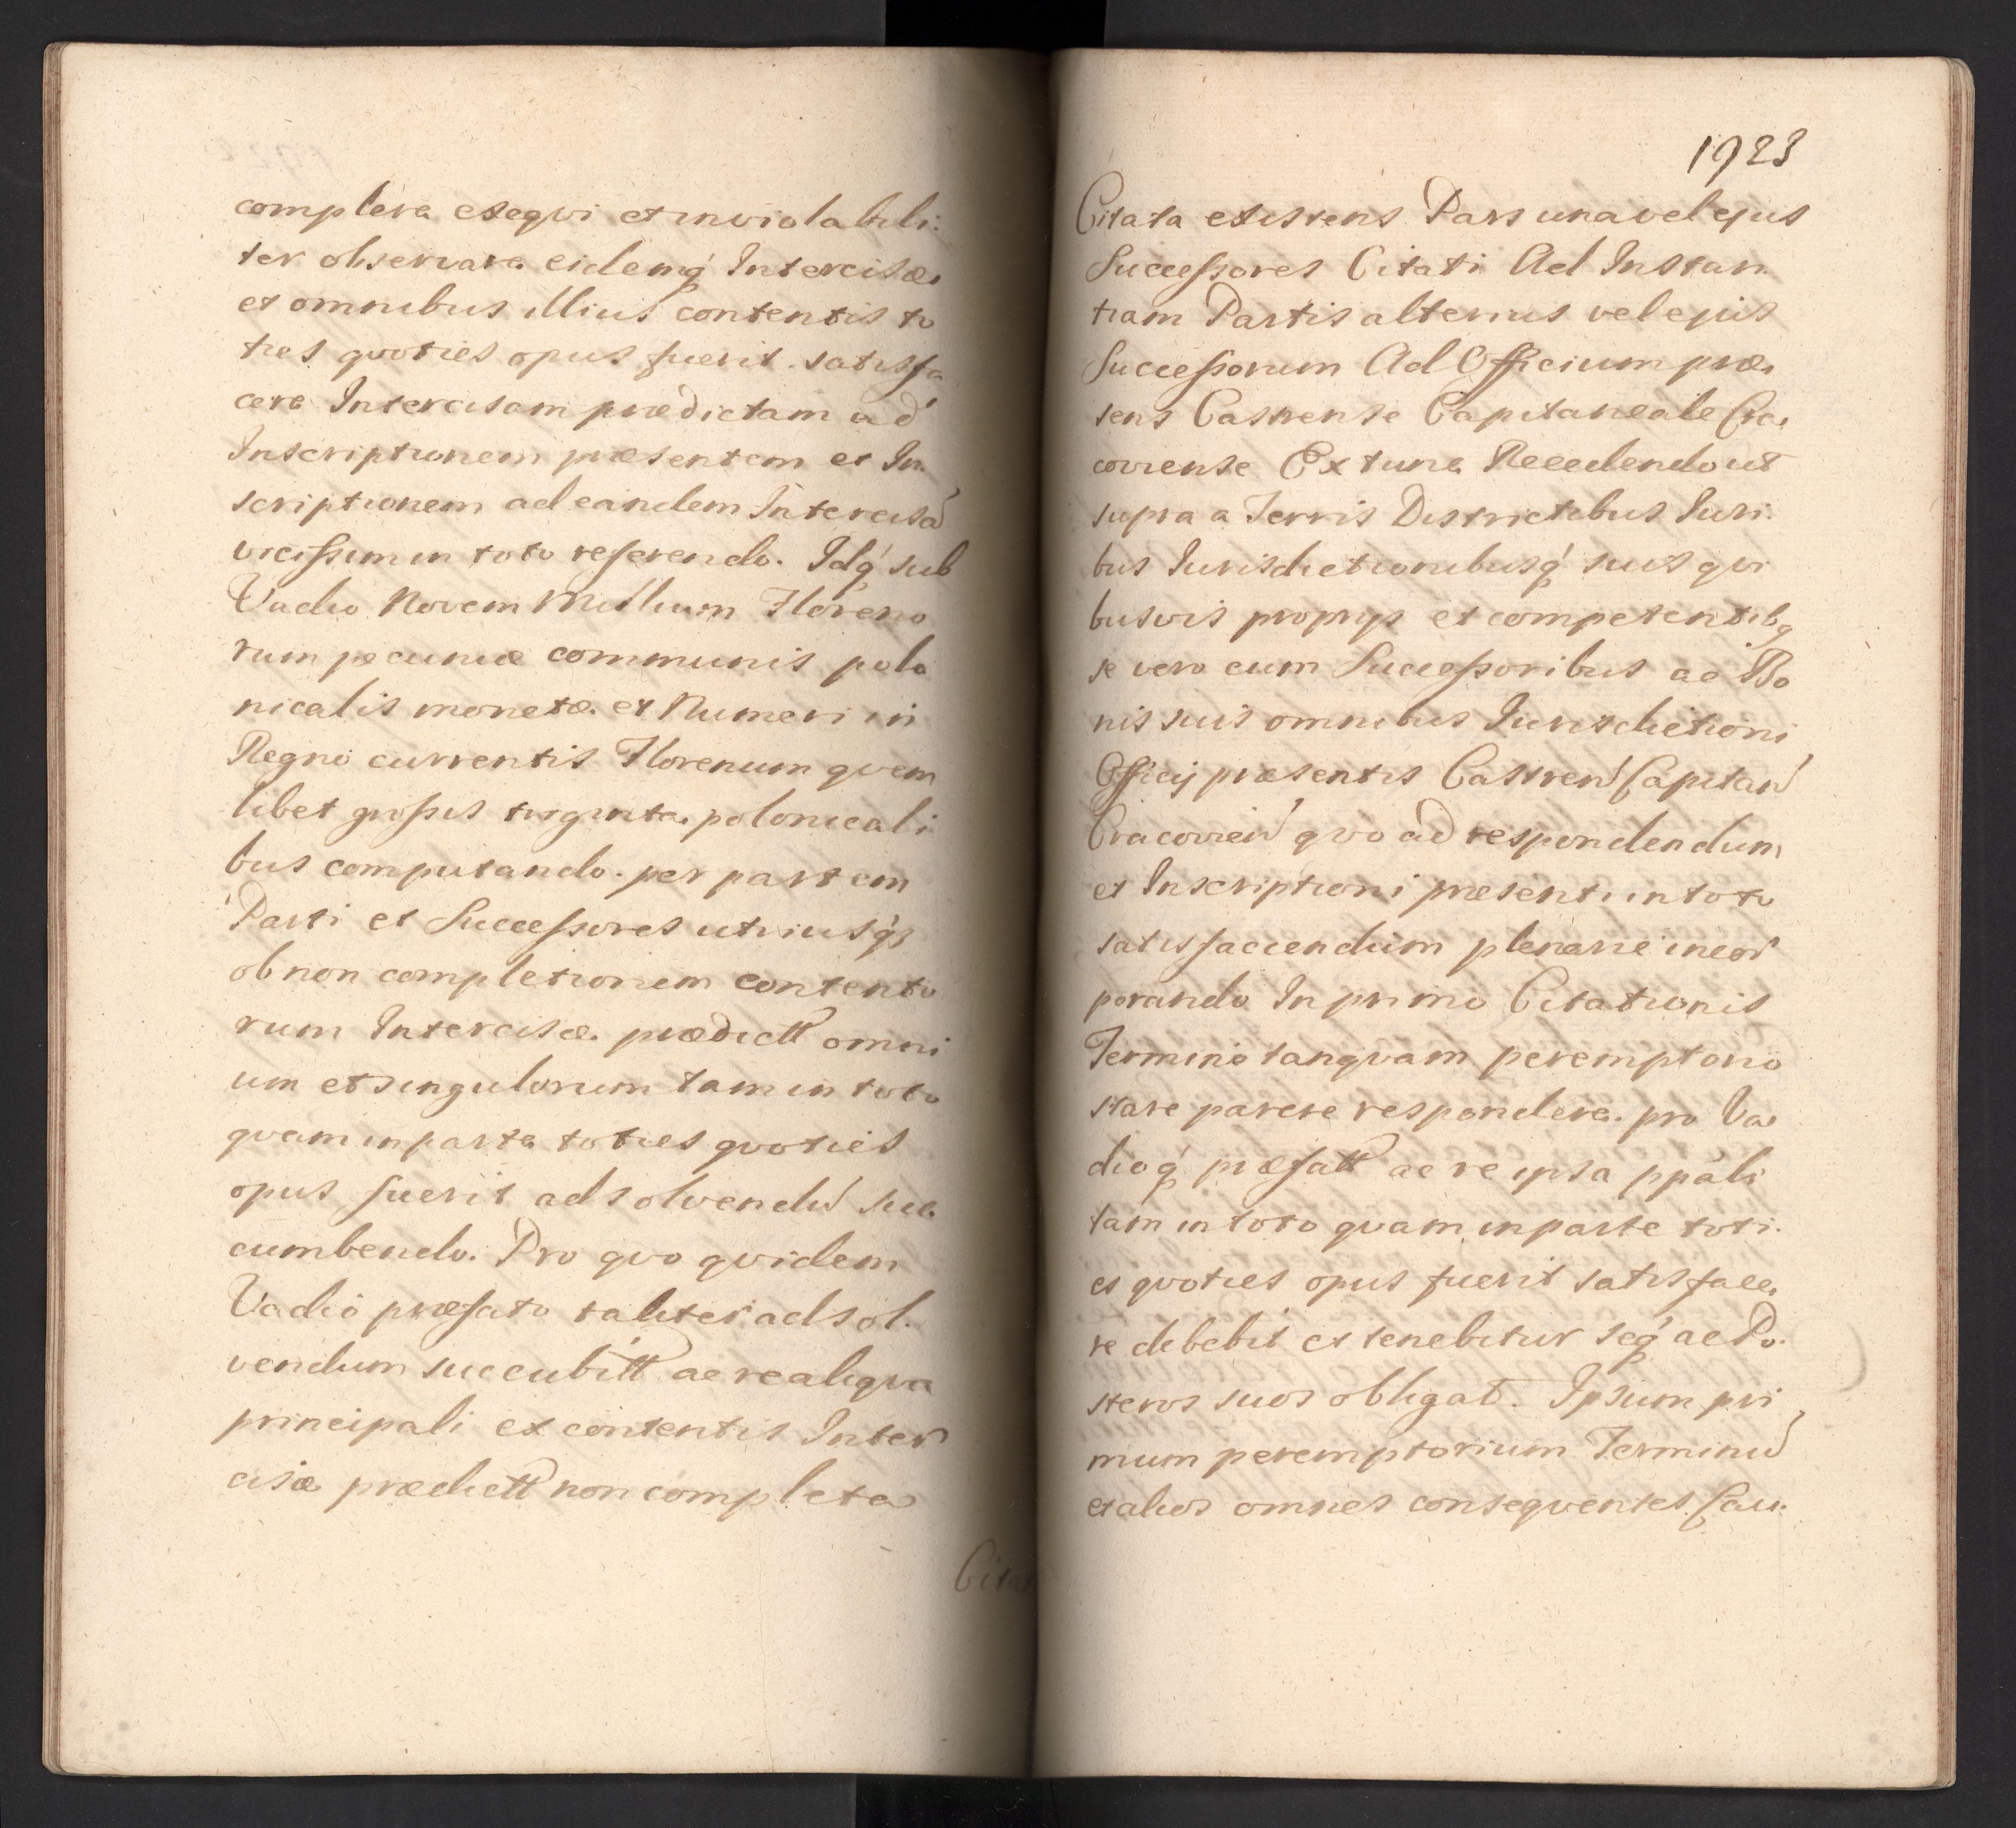 complere exequi et inviolabili:
ter observare eidemq́ Intercisæ
et omnibus illius contentis to
ties qvoties opus fuerit satisfa
cere Intercisam prædictam ad
Inscriptionem præsentem et In
scriptionem ad eandem Intercisã
vicissim in toto referendo. Idq́ sub
Vadio Novem Millium Floreno
rum pecuniæ communis polo
nicalis monetæ et Numeri in
Regno currentis Florenum qvem
libet grossis triginta polonicali
bus computando per partem
Parti et Successores utriusq́
ob non completionem contento
rum Intercisæ prædictt omni
um et singulorum tam in toto
qvam in parte toties qvoties
opus fuerit adsolvendũ suc
cumbendo. Pro qvo qvidem
Vadio præfato taliter adsol
vendum succubitt ac re aliqva
principali ex contentis Inter
cisæ prædictt non completa
Citat
1923
Citata existens Pars una vel ejus
Successores Citati Ad Instan
tiam Partis alterius vel ejus
Successorum Ad Officium præ
sens Castrense Capitaneale Cra
coviense Ex tunc Recedendo ut
supra a Terris Districtibus Juri
bus Jurisdictionibusq́ suis qvi
busvis proprys et competentibq
se vero cum Successoribus ac Bo
nis suis omnibus Jurisdictioni
Officij præsentis Castren̄ Capitan̄
Cracovien̄ qvo ad respondendum
et Inscriptioni præsenti in toto
satisfaciendum plenarie incor
porando In primo Citationis
Termino tanqvam peremptorio
stare parere respondere pro Va
dioq́ præfatt ac re ipsa ppali
tam in toto qvam in parte toti
es qvoties opus fuerit satisface
re debebit et tenebitur seq́ ac Po
steros suos obligat. Ipsum pri
mum peremptorium Terminũ
et alios omnes conseqventes Cau